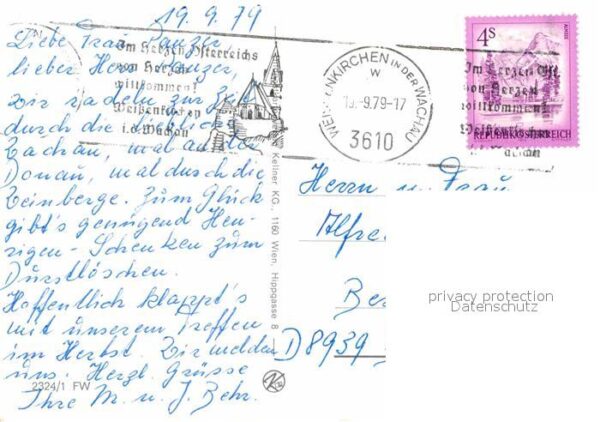 19.9.79
Liebe Frau
lieber Herr
wir radeln zur Zeit
durch die
Wachau, mal an der
Donau, mal durch die
Weinberge. Zum Glück
gibt's genügend Heu-
rigen-Schenken zum
Durstlöschen.
Hoffentlich klappt's
mit unserem Treffen
im Herbst. Wir melden
uns. Herzl. Grüsse
Ihre M. u. J. Behr.
2324/1 FW
Im Herzen Österreichs
von Herzen
willkommen!
Weißenkirchen
i.d. Wachau
Kellner KG., 1160 Wien, Hippgasse 8
WEISSENKIRCHEN IN DER WACHAU
W
19.-9.79-17
3610
4S
REPUBLIK ÖSTERREICH
Im Herzen Öst
von Herzen
willkommen!
Weißenkirchen
Wachau
Herrn u. Frau
Alfre
Be
D 8939
privacy protection
Datenschutz